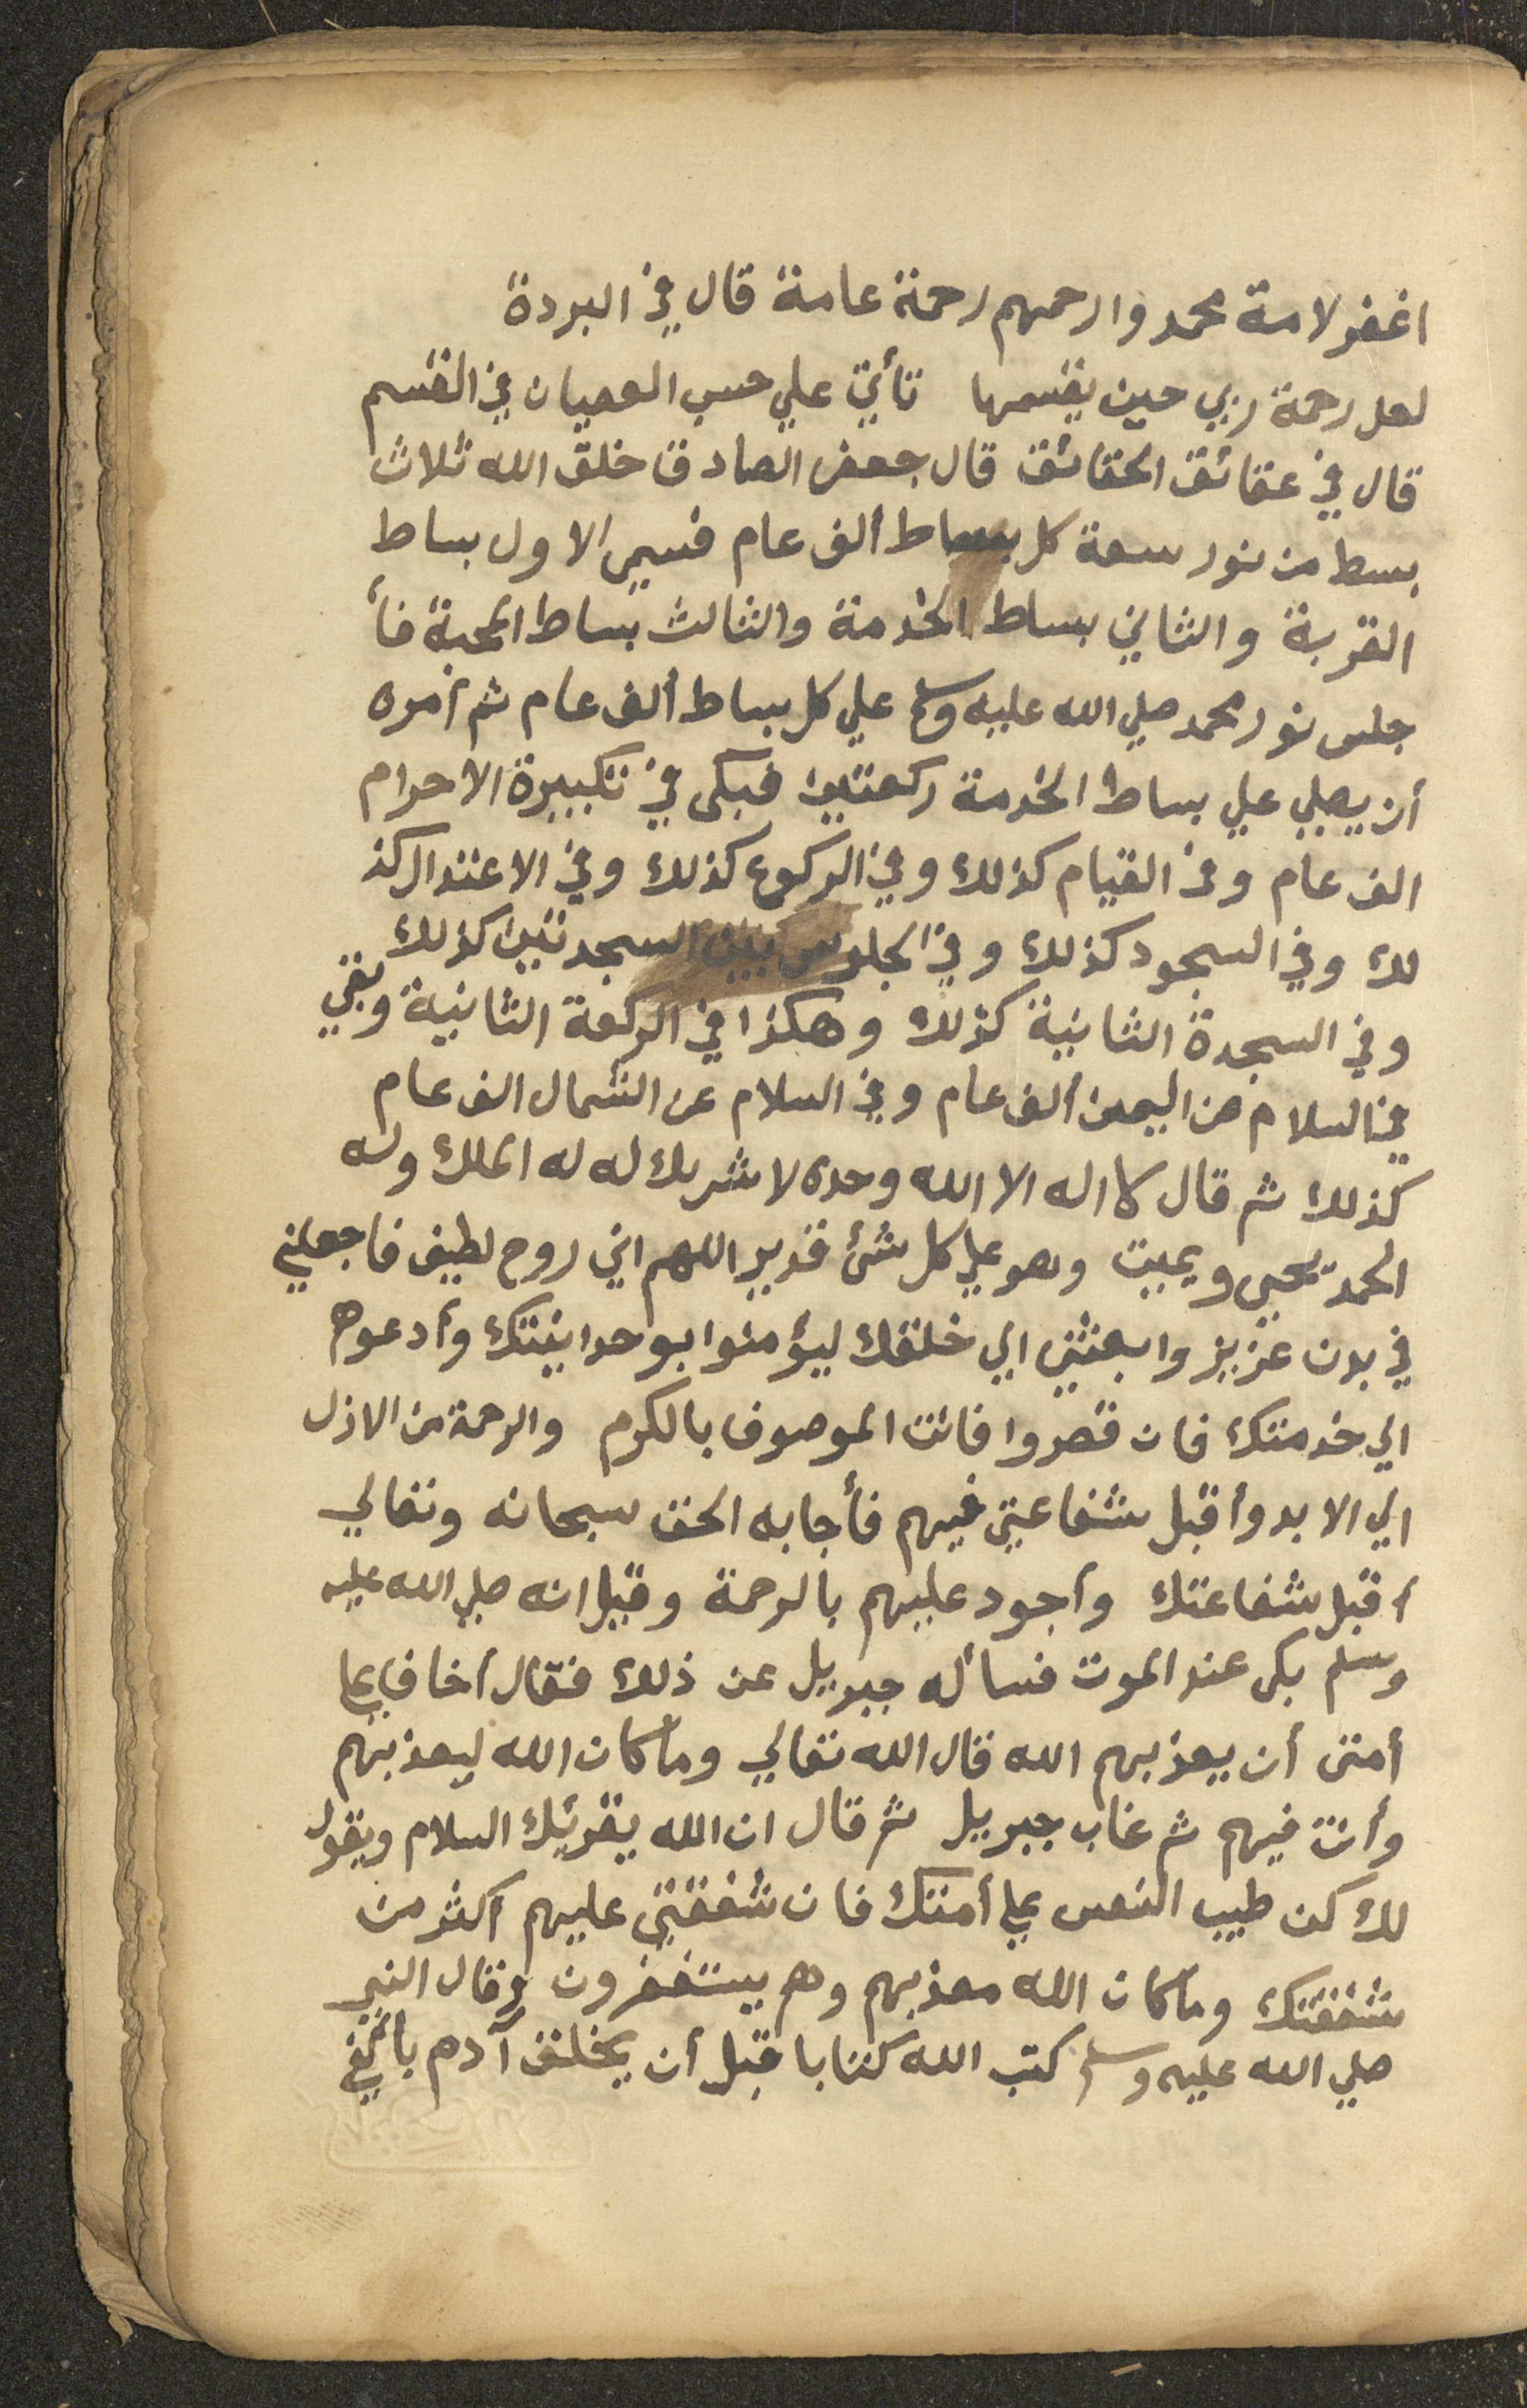 اغفر لامة محمد وارحمهم رحمة عامة قال في البردة
لعل رحمة ربي حين يقسمها تأتي علي حسب العصيان في القسم
قال في عقائق الحقائق قال جعفر الصادق خلق الله ثلاث
بسط من نور سعة كل بساط ألف عام فسمي الاول بساط
القربة والثاني بساط الخدمة والثالث بساط المحبة فأ
جلس نور محمد صلي الله عليه وسلم علي كل بساط ألف عام ثم أمره
أن يصلي علي بساط الخدمة ركعتين فبكى في تكبيرة الاحرام
الف عام وفي القيام كذلك وفي الركوع كذلك وفي الاعتدال كذ
لك وفي السجود كذلك وفي الجلوس بين السجدتين كذلك
وفي السجدة الثانية كذلك وهكذا في الركعة الثانية وبقي
في السلام من اليمين ألف عام وفي السلام عن الشمال الف عام
كذلك ثم قال لا اله الا الله وحده لا شريك له له الملك وله
الحمد يحيي ويميت وهو علي كل شئ قدير اللهم اني روح لطيف فاجعلني
في بدن عزيز وابعثني الي خلقك ليؤمنوا بوحدانيتك وأدعوهم
الي خدمتك فان قصروا فانت الموصوف بالكرم والرحمة من الازل
الي الابد وأقبل شفاعتي فيهم فأجابه الحق سبحانه وتعالي
أقبل شفاعتك وأجود عليهم بالرحمة وقيل انه صلي الله عليه
وسلم بكى عند الموت فسأله جبريل عن ذلك فقال أخاف علي
أمتي أن يعذبهم الله قال الله تعالي وما كان الله ليعذبهم
وأنت فيهم ثم غاب جبريل ثم قال ان الله يقرئك السلام ويقول
لك كن طيب النفس علي أمتك فان شفقتي عليهم أكثر من
شفقتك وما كان الله معذبهم وهم يستغفرون وقال النبي
صلي الله عليه وسلم كتب الله كتابا قبل أن يخلق آدم بألفي